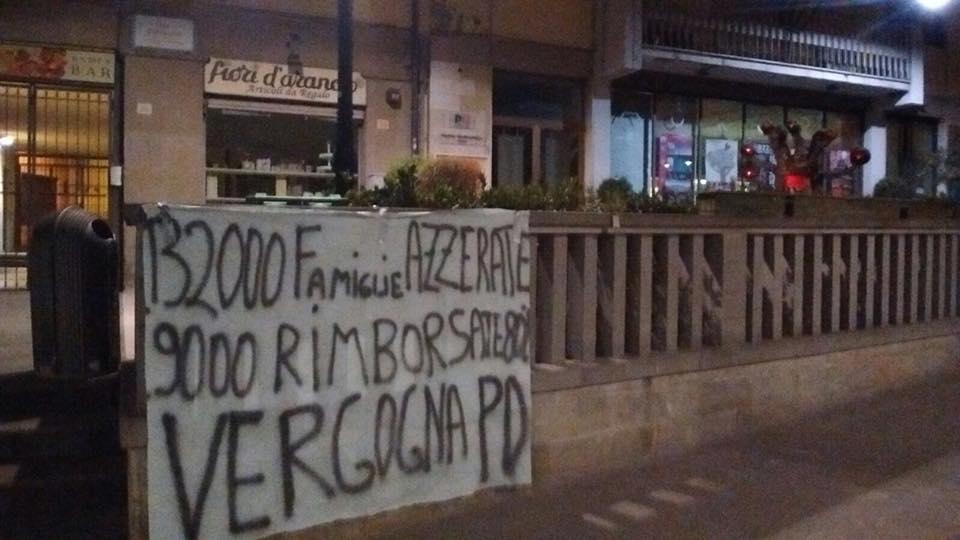 BAR
fiori d'arancio
Articoli da Regalo
132000 FAMIGLIE AZZERATE
9000 RIMBORSATE 80%
VERGOGNA PD